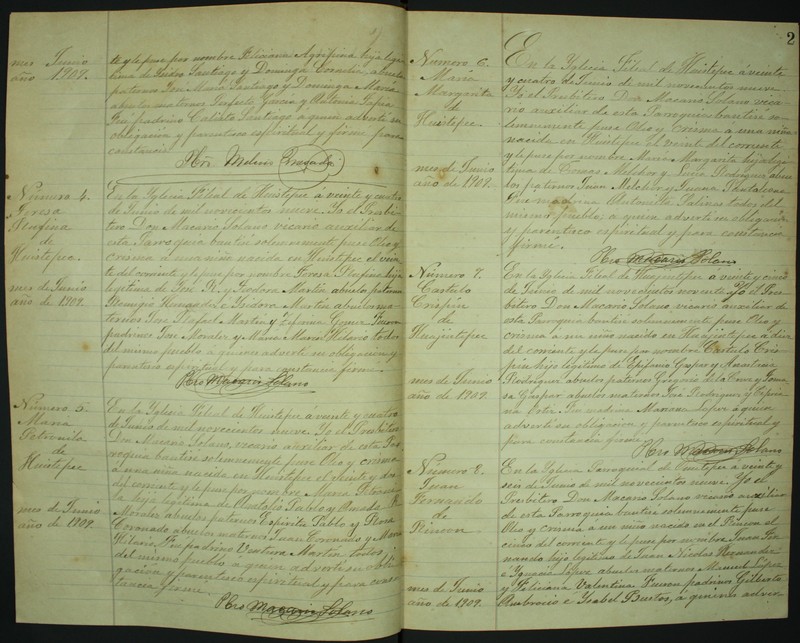 mes Junio
año 1909.
te y le puse por nombre Feliciana Agrifina hija legi
tima de Santiago y Dominga abuelos
paternos José María Santiago y Dominga María
abuelos maternos García y Antonia Tapia
Fué padrino Calixto Santiago a quien advertí su
obligación y parentesco espiritual y firmé para
constancia
Número 4.
Teresa
de
Huistepec.
mes de Junio
año de 1909.
En la Yglesia Filial de Huistepec á veinte y cuatro
de Junio de mil novecientos nueve Yo el Presbi
tero Don Macario Solano vicario auxiliar de
esta Parroquia bauticé solemnemente puse Oleo y
crisma a una niña nacida en Huistepec el vein
te del corriente y le puse por nombre Teresa hija
legítima de José y Teodora Martín abuelos paternos
Remigio Hernandez Teodora Martín abuelos ma
ternos José Rafael Martín y Gomez Fueron
padrinos José Morales y María todos
del mismo pueblo a quienes advertí su obligacion y
parentesco espiritual y para constancia firmé.
Pbro Macario Solano
Número 5.
Maria
Petronila
de
Huistepec
mes de Junio
año de 1909.
En la Yglesia Filial de Huistepec á veinte y cuatro
de Junio de mil novecientos nueve Yo el Presbitero
Don Macario Solano, vicario auxiliar de esta Par
roquia bauticé solemnemente puse Oleo y crisma
a una niña nacida en Huistepec el veinte y dos
del corriente y le puse por nombre Maria Petroni
la hija legítima de Pablo y Amada
Morales abuelos paternos Espiritu Pablo y Flora
Coronado abuelos maternos Juan Coronado y María
Hilario, Fué padrino Ventura Martín todos
del mismo pueblo a quien advertí su obli
gacion y parentesco espiritual y para cons
tancia firmé.
Pbro Macario Solano
2
Número 6.
María
Margarita
de
Huistepec.
mes de Junio
año de 1909.
En la Yglesia Filial de Huistepec á veinte
y cuatro de Junio de mil novecientos nueve
Yo el Presbitero Don Macario Solano vica
rio auxiliar de esta Parroquia bauticé so
lemnemente puse Oleo y crisma a una niña
nacida en Huistepec el veinte del corriente
y le puse por nombre María Margarita hija legi
tima de Tomas Melchor y Rodriguez abue
los paternos Juan Melchor y Juana
madrina Antonia Salinas todos del
mismo pueblo, a quien advertí su obligacion
y parentesco espiritual y para constancia
firmé.
Pbro Macario Solano
Número 7.
Castulo
Crispín
de
Huajintepec
mes de Junio
año de 1909.
En la Yglesia Filial de Huajintepec a veinte y cinco
de Junio de mil novecientos nueve Yo el Pres
bitero Don Macario Solano, vicario auxiliar de
esta Parroquia bauticé solemnemente puse Oleo y
crisma a un niño nacido en Huajintepec a diez
del corriente y le puse por nombre Castulo Cris
pín hijo legítimo de Epifanio Gaspar y
Rodriguez abuelos paternos Gregorio de la Cruz y Toma
sa Gaspar abuelos maternos José Rodriguez y
Fué madrina Mariana Lopez a quien
advertí su obligacion y parentesco espiritual y
para constancia firmé.
Pbro Macario Solano
Número 8.
Juan
Fernando
de
Rincon
mes de Junio
año de 1909.
En la Yglesia Parroquial de Ometepec a veinte y
seis de Junio de mil novecientos nueve. Yo el
Presbitero Don Macario Solano vicario auxiliar
de esta Parroquia bauticé solemnemente puse
Oleo y crisma a un niño nacido en el Rincon el
cinco del corriente y le puse por nombre Juan Fer
nando hijo legítimo de Juan Nicolas Hernandez
é Ygnacia Lopez abuelos maternos Manuel Lopez
y Feliciana Valentina Fueron padrinos Gilberto
Ambrocio é Ysabel Bustos, a quienes adver